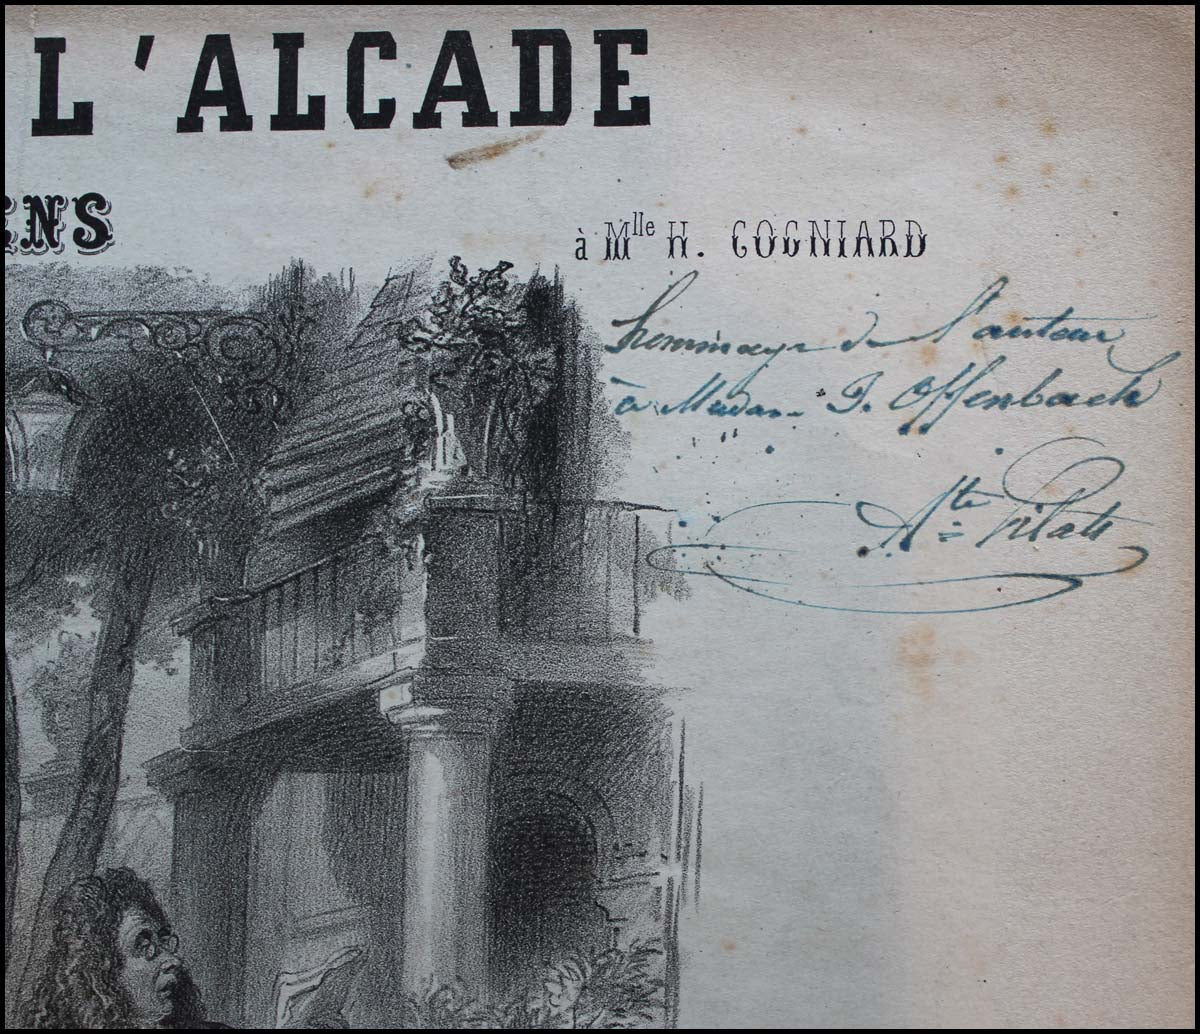 L'ALCADE
ENS
à Mlle H. COGNIARD
hommage de l'auteur
à Madame J. Offenbach
Ate Pilati